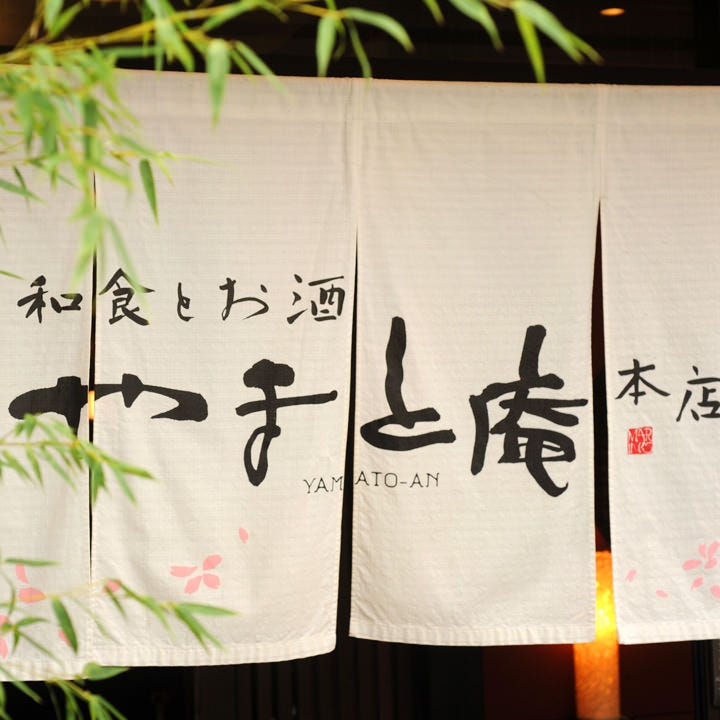 和食とお酒
やまと庵
本店
YAMATO-AN